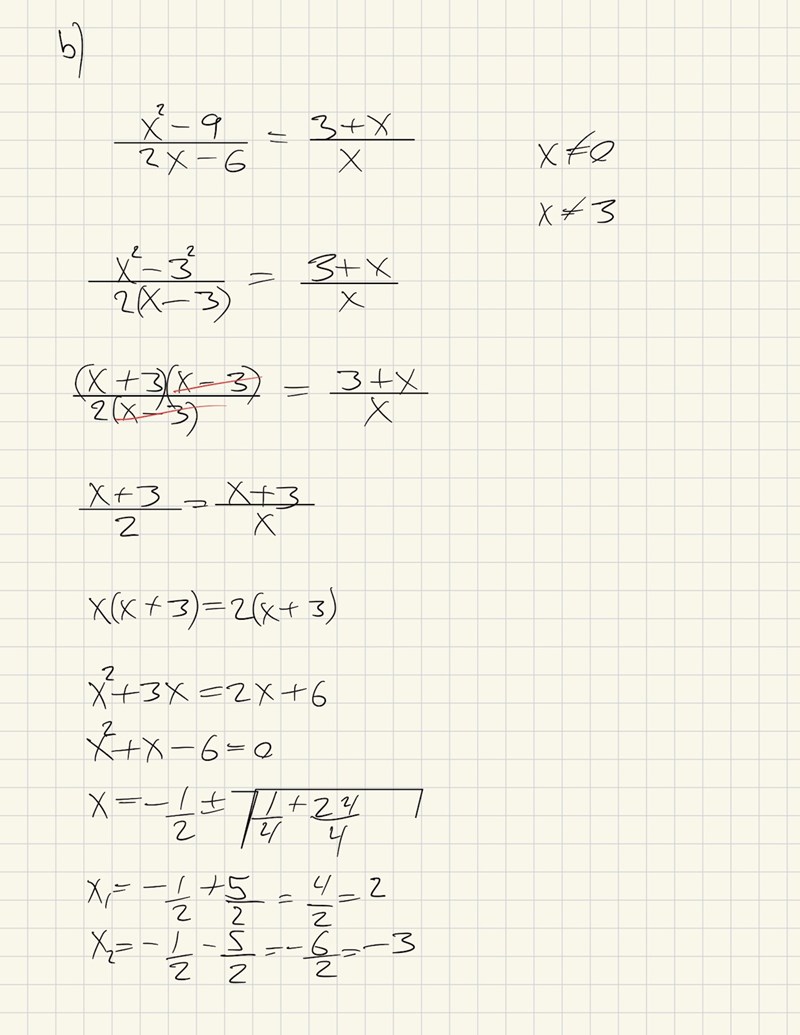 b)
x² - 9 / 2x - 6 = 3 + x / x
x ≠ 0
x ≠ 3
x² - 3² / 2(x - 3) = 3 + x / x
(x + 3)(x - 3) / 2(x - 3) = 3 + x / x
x + 3 / 2 = x + 3 / x
x(x + 3) = 2(x + 3)
x² + 3x = 2x + 6
x² + x - 6 = 0
x = - 1/2 ± √(1/4 + 24/4)
x₁ = - 1/2 + 5/2 = 4/2 = 2
x₂ = - 1/2 - 5/2 = - 6/2 = - 3